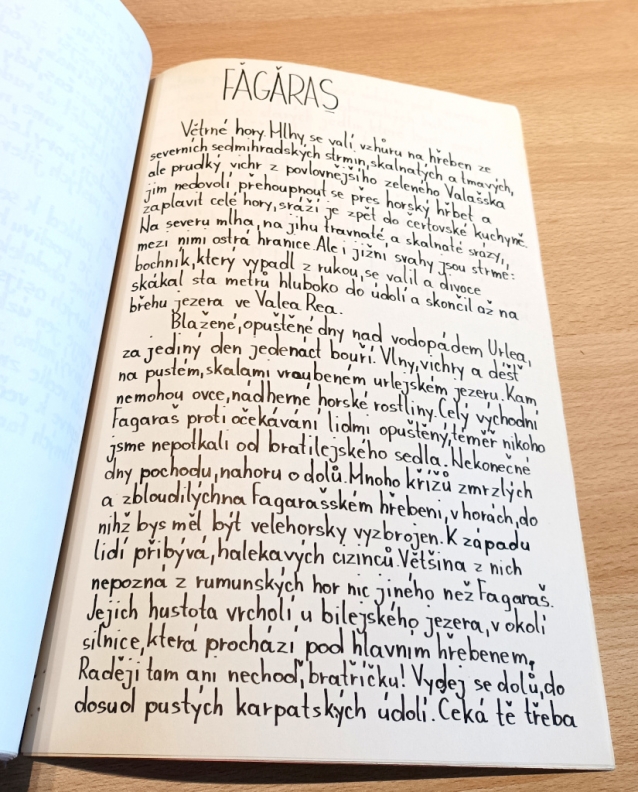 FĂGĂRAȘ
Větrné hory. Mlhy se valí vzhůru na hřeben ze
severních sedmihradských strmin, skalnatých a tmavých,
ale prudký vichr z povlovnějšího zeleného Valašska
jim nedovolí přehoupnout se přes horský hřbet a
zaplavit celé hory, sráží je zpět do čertovské kuchyně.
Na severu mlha, na jihu travnaté, a skalnaté srázy,
mezi nimi ostrá hranice. Ale i jižní svahy jsou strmé:
bochník, který vypadl z rukou, se valil a divoce
skákal sta metrů hluboko do údolí a skončil až na
břehu jezera ve Valea Rea.
Blažené, opuštěné dny nad vodopádem Urlea,
za jediný den jedenáct bouří. Vlny, vichry a déšť
na pustém, skalami vroubeném urlejském jezeru. Kam
nemohou ovce, nádherné horské rostliny. Celý východní
Fagaraš proti očekávání lidmi opuštěný, téměř nikoho
jsme nepotkali od bratilejského sedla. Nekonečné
dny pochodu, nahoru o dolů. Mnoho křížů zmrzlých
a zbloudilýchna Fagarašském hřebeni, v horách, do
nihž bys měl být velehorsky vyzbrojen. K západu
lidí přibývá, halekavých cizinců. Většina z nich
nepozná z rumunských hor nic jiného než Fagaraš.
Jejich hustota vrcholí u bilejského jezera, v okolí
silnice, která prochází pod hlavním hřebenem.
Raději tam ani nechoď, bratříčku! Vydej se dolů, do
dosud pustých karpatských údolí. Čeká tě třeba